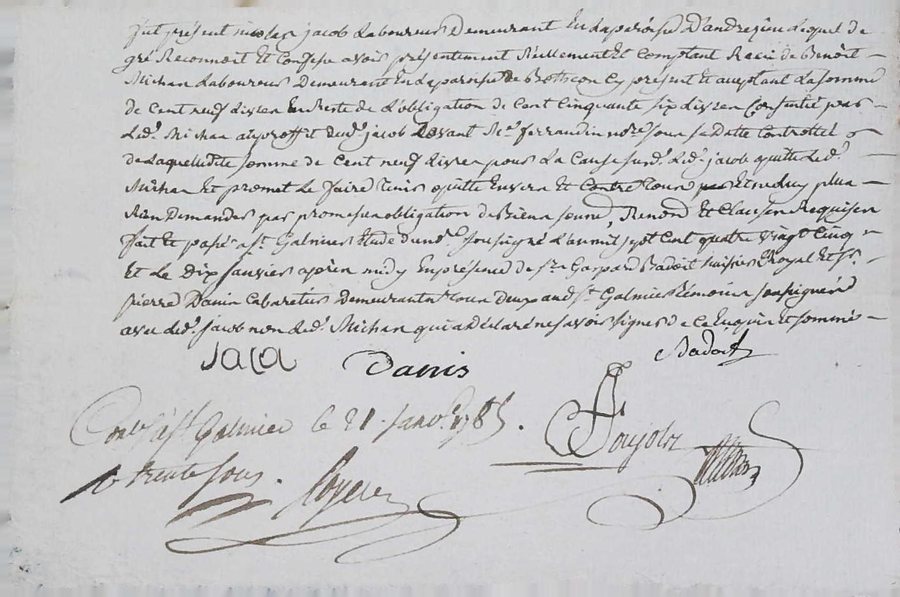 fut présent nicolas jacob Laboureur Demeurant En la paroisse D'andrezieu Lequel de
gré Reconnoit Et Confesse avoir présentement Réellement Et Comptant Recu de Benoit
Michan Laboureur Demeurant En la paroisse de Botheon Cy présent Et aceptant La somme
de Cent neuf Livres En Reste de L'obligation de Cent Cinquante six Livres Consentie par
Led. Michan au proffit dud. jacob Devant Me. ferrandin nore. sous sa Datte Controllée
de Laquelle dite somme de Cent neuf Livres pour La Cause susd. Led. jacob quitte Led.
Michan Et promet Le faire tenir quitte Envers Et Contre tous Et ne luy plus
Rien Demander par promesse obligation de Biens soumd. Renond. Et Clauses Requises
fait Et passé a st. Galmier Etude du nore. soussigné L'an mil sept Cent quatre Vingt Cinq
Et Le Dix janvier après midy En présence de sr. Gaspard Badoit huissier Royal Et sr.
pierre Danis Cabaretier Demeurants tous Deux aud. st. Galmier témoins soussignés
avec Led. jacob non Led. Michan qui a déclaré ne savoir signer de Ce Enquis Et sommé
Jaca Danis Badoit
Conlé à st Galmier le 21 janvr. 1785.
R trente sous.